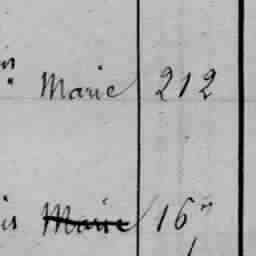 Marie 212
is Marie 16